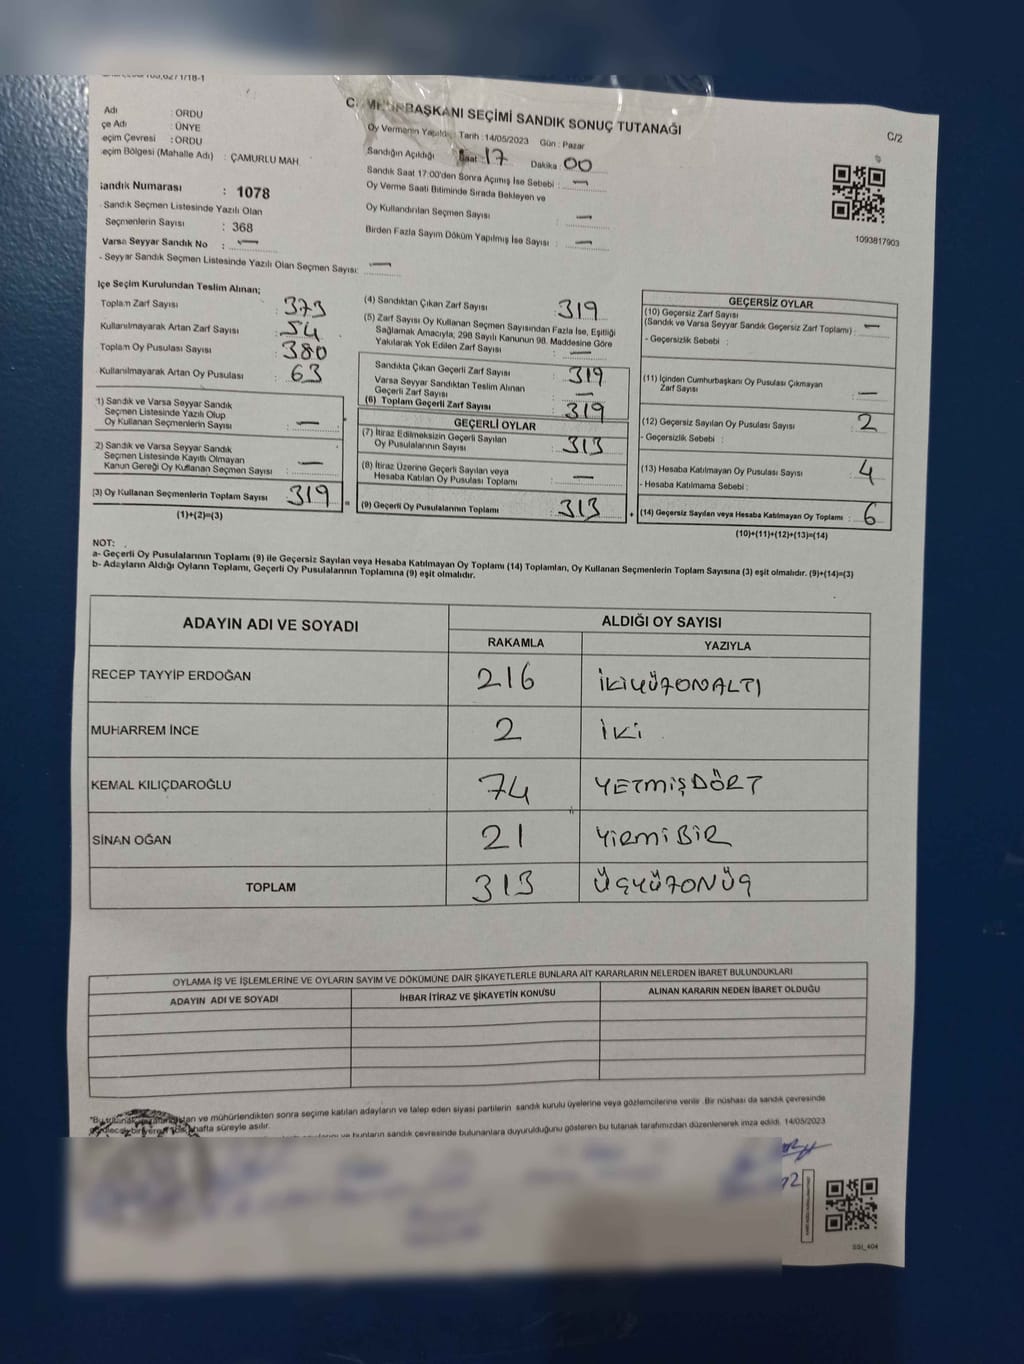 CUMHURBAŞKANI SEÇİMİ SANDIK SONUÇ TUTANAĞI
C/2
Adı : ORDU
çe Adı : ÜNYE
eçim Çevresi : ORDU
eçim Bölgesi (Mahalle Adı) : ÇAMURLU MAH
Sandık Numarası : 1078
Sandık Seçmen Listesinde Yazılı Olan
Seçmenlerin Sayısı : 368
Varsa Seyyar Sandık No : —
- Seyyar Sandık Seçmen Listesinde Yazılı Olan Seçmen Sayısı: —
Oy Vermenin Yapıldığı Tarih : 14/05/2023 Gün : Pazar
Sandığın Açıldığı Saat : 17 Dakika : 00
Sandık Saat 17:00'den Sonra Açımış İse Sebebi : —
Oy Verme Saati Bitiminde Sırada Bekleyen ve
Oy Kullandırılan Seçmen Sayısı —
Birden Fazla Sayım Döküm Yapılmış İse Sayısı : —
1093817903
İlçe Seçim Kurulundan Teslim Alınan;
Toplam Zarf Sayısı : 373
Kullanılmayarak Artan Zarf Sayısı : 54
Toplam Oy Pusulası Sayısı : 380
Kullanılmayarak Artan Oy Pusulası : 63
1) Sandık ve Varsa Seyyar Sandık
Seçmen Listesinde Yazılı Olup
Oy Kullanan Seçmenlerin Sayısı : —
2) Sandık ve Varsa Seyyar Sandık
Seçmen Listesinde Kayıtlı Olmayan
Kanun Gereği Oy Kullanan Seçmen Sayısı : —
(3) Oy Kullanan Seçmenlerin Toplam Sayısı : 319
(1)+(2)=(3)
(4) Sandıktan Çıkan Zarf Sayısı : 319
(5) Zarf Sayısı Oy Kullanan Seçmen Sayısından Fazla İse, Eşitliği
Sağlamak Amacıyla, 298 Sayılı Kanunun 98. Maddesine Göre
Yakılarak Yok Edilen Zarf Sayısı : —
Sandıkta Çıkan Geçerli Zarf Sayısı : 319
Varsa Seyyar Sandıktan Teslim Alınan
Geçerli Zarf Sayısı : —
(6) Toplam Geçerli Zarf Sayısı : 319
GEÇERLİ OYLAR
(7) İtiraz Edilmeksizin Geçerli Sayılan
Oy Pusulalarının Sayısı : 313
(8) İtiraz Üzerine Geçerli Sayılan veya
Hesaba Katılan Oy Pusulası Toplamı : —
(9) Geçerli Oy Pusulalarının Toplamı : 313
GEÇERSİZ OYLAR
(10) Geçersiz Zarf Sayısı
(Sandık ve Varsa Seyyar Sandık Geçersiz Zarf Toplamı) : —
- Geçersizlik Sebebi :
(11) İçinden Cumhurbaşkanı Oy Pusulası Çıkmayan
Zarf Sayısı : —
(12) Geçersiz Sayılan Oy Pusulası Sayısı : 2
- Geçersizlik Sebebi :
(13) Hesaba Katılmayan Oy Pusulası Sayısı : 4
- Hesaba Katılmama Sebebi :
(14) Geçersiz Sayılan veya Hesaba Katılmayan Oy Toplamı : 6
(10)+(11)+(12)+(13)=(14)
NOT:
a- Geçerli Oy Pusulalarının Toplamı (9) ile Geçersiz Sayılan veya Hesaba Katılmayan Oy Toplamı (14) Toplamları, Oy Kullanan Seçmenlerin Toplam Sayısına (3) eşit olmalıdır. (9)+(14)=(3)
b- Adayların Aldığı Oyların Toplamı, Geçerli Oy Pusulalarının Toplamına (9) eşit olmalıdır.
ADAYIN ADI VE SOYADI ALDIĞI OY SAYISI
RAKAMLA YAZIYLA
RECEP TAYYİP ERDOĞAN 216 İKİYÜZONALTI
MUHARREM İNCE 2 İKİ
KEMAL KILIÇDAROĞLU 74 YETMİŞDÖRT
SİNAN OĞAN 21 YİRMİBİR
TOPLAM 313 ÜÇYÜZONÜÇ
OYLAMA İŞ VE İŞLEMLERİNE VE OYLARIN SAYIM VE DÖKÜMÜNE DAİR ŞİKAYETLERLE BUNLARA AİT KARARLARIN NELERDEN İBARET BULUNDUKLARI
ADAYIN ADI VE SOYADI İHBAR İTİRAZ VE ŞİKAYETİN KONUSU ALINAN KARARIN NEDEN İBARET OLDUĞU
ve mühürlendikten sonra seçime katılan adayların ve talep eden siyasi partilerin sandık kurulu üyelerine veya gözlemcilerine verilir. Bir nüshası da sandık çevresinde
hafta süreyle asılır.
ve bunların sandık çevresinde bulunanlara duyurulduğunu gösteren bu tutanak tarafımızdan düzenlenerek imza edildi. 14/05/2023
SSI_404